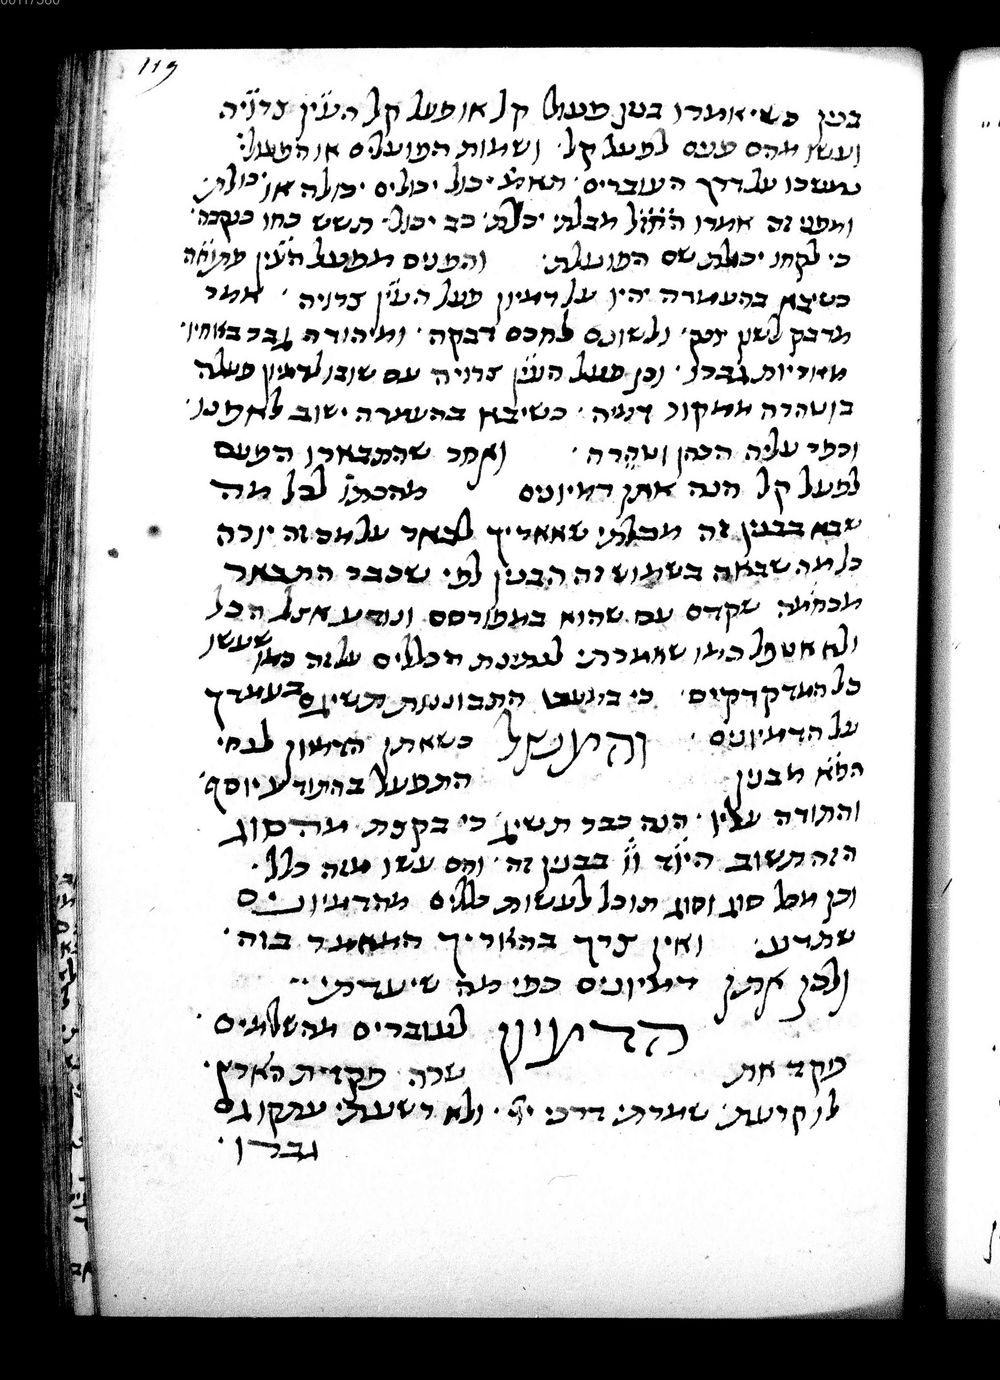 119
בנין כשיאמרו בנין פעול קל או פעל קל העי״ן צרויה
ועשו מהם פנים לפעל קל ושמות הפועלים או הפעולי׳
נמשכו על דרך העוברים תאמ׳ יכול יכולים יכולה או יכולת׳
ומפני זה אמרו מבלתי יכלת׳ כב יכול׳ תשש כחו כנקבה׳
כי לקחו יכלת שם הפועלת׳ והפנים מפעל העי״ן
כשיבא בהעמדה יהיו על דמיון פעל העי״ן צרויה ׳ אמר
מדבק לשון ולשונם לחכם דבקה׳ ומיהודה גבר באחיו׳
גברו׳ וכן פעל העי״ן צרויה עם שובו לדמיון פעלה
בוטהרה ממקור דמיה׳ כשיבא בהעמדה ישוב לאמתו׳
וכפר עליה הכהן וטהרה ׳ ואחר שהתבארו הפעם
לפעל קל הנה אתן דמיונים מהכתו׳ לכל מה
שבא בבנין זה מבלתי שאאריך לבאר על מה זה יורה
כל מה שבא׳ה בשמוש זה הבנין לפי שכבר התבאר
מכח מה שקדם עם שהוא במפורסם ונודע אצל הכל
ולא אטפל כמו שאמרתי לנתינת הכללים על זה כמו שעשו
כל המדקדקים׳ כי במעט התבוננות תשיגם בעמדך
על הדמיונים ׳ והמשל כשאתן הדמיון לנחי
הפ״א מבנין התפעל בהתודע יוסף׳
והתודה עליו׳ הנה כבר תשיג׳ כי בקצת מהסוג
הזה תשוב היו״ד וי״ו בבנין זה׳ והם עשו מזה כלל׳
וכן מכל סוג וסוג תוכל לעשות כללים מהדמיונים
שתדע׳ ואין צרך בהאריך המאמר בזה׳
ולכן אתן דמיונים כפי מה שיעדתי׳׳
הדמיון לעוברים מהשלמים׳
פקד את שרה פקדת הארץ׳
לו קדעת׳ שמרתי דרכי יי׳׳ ולא רשעתי עתקו גם
גברו׳